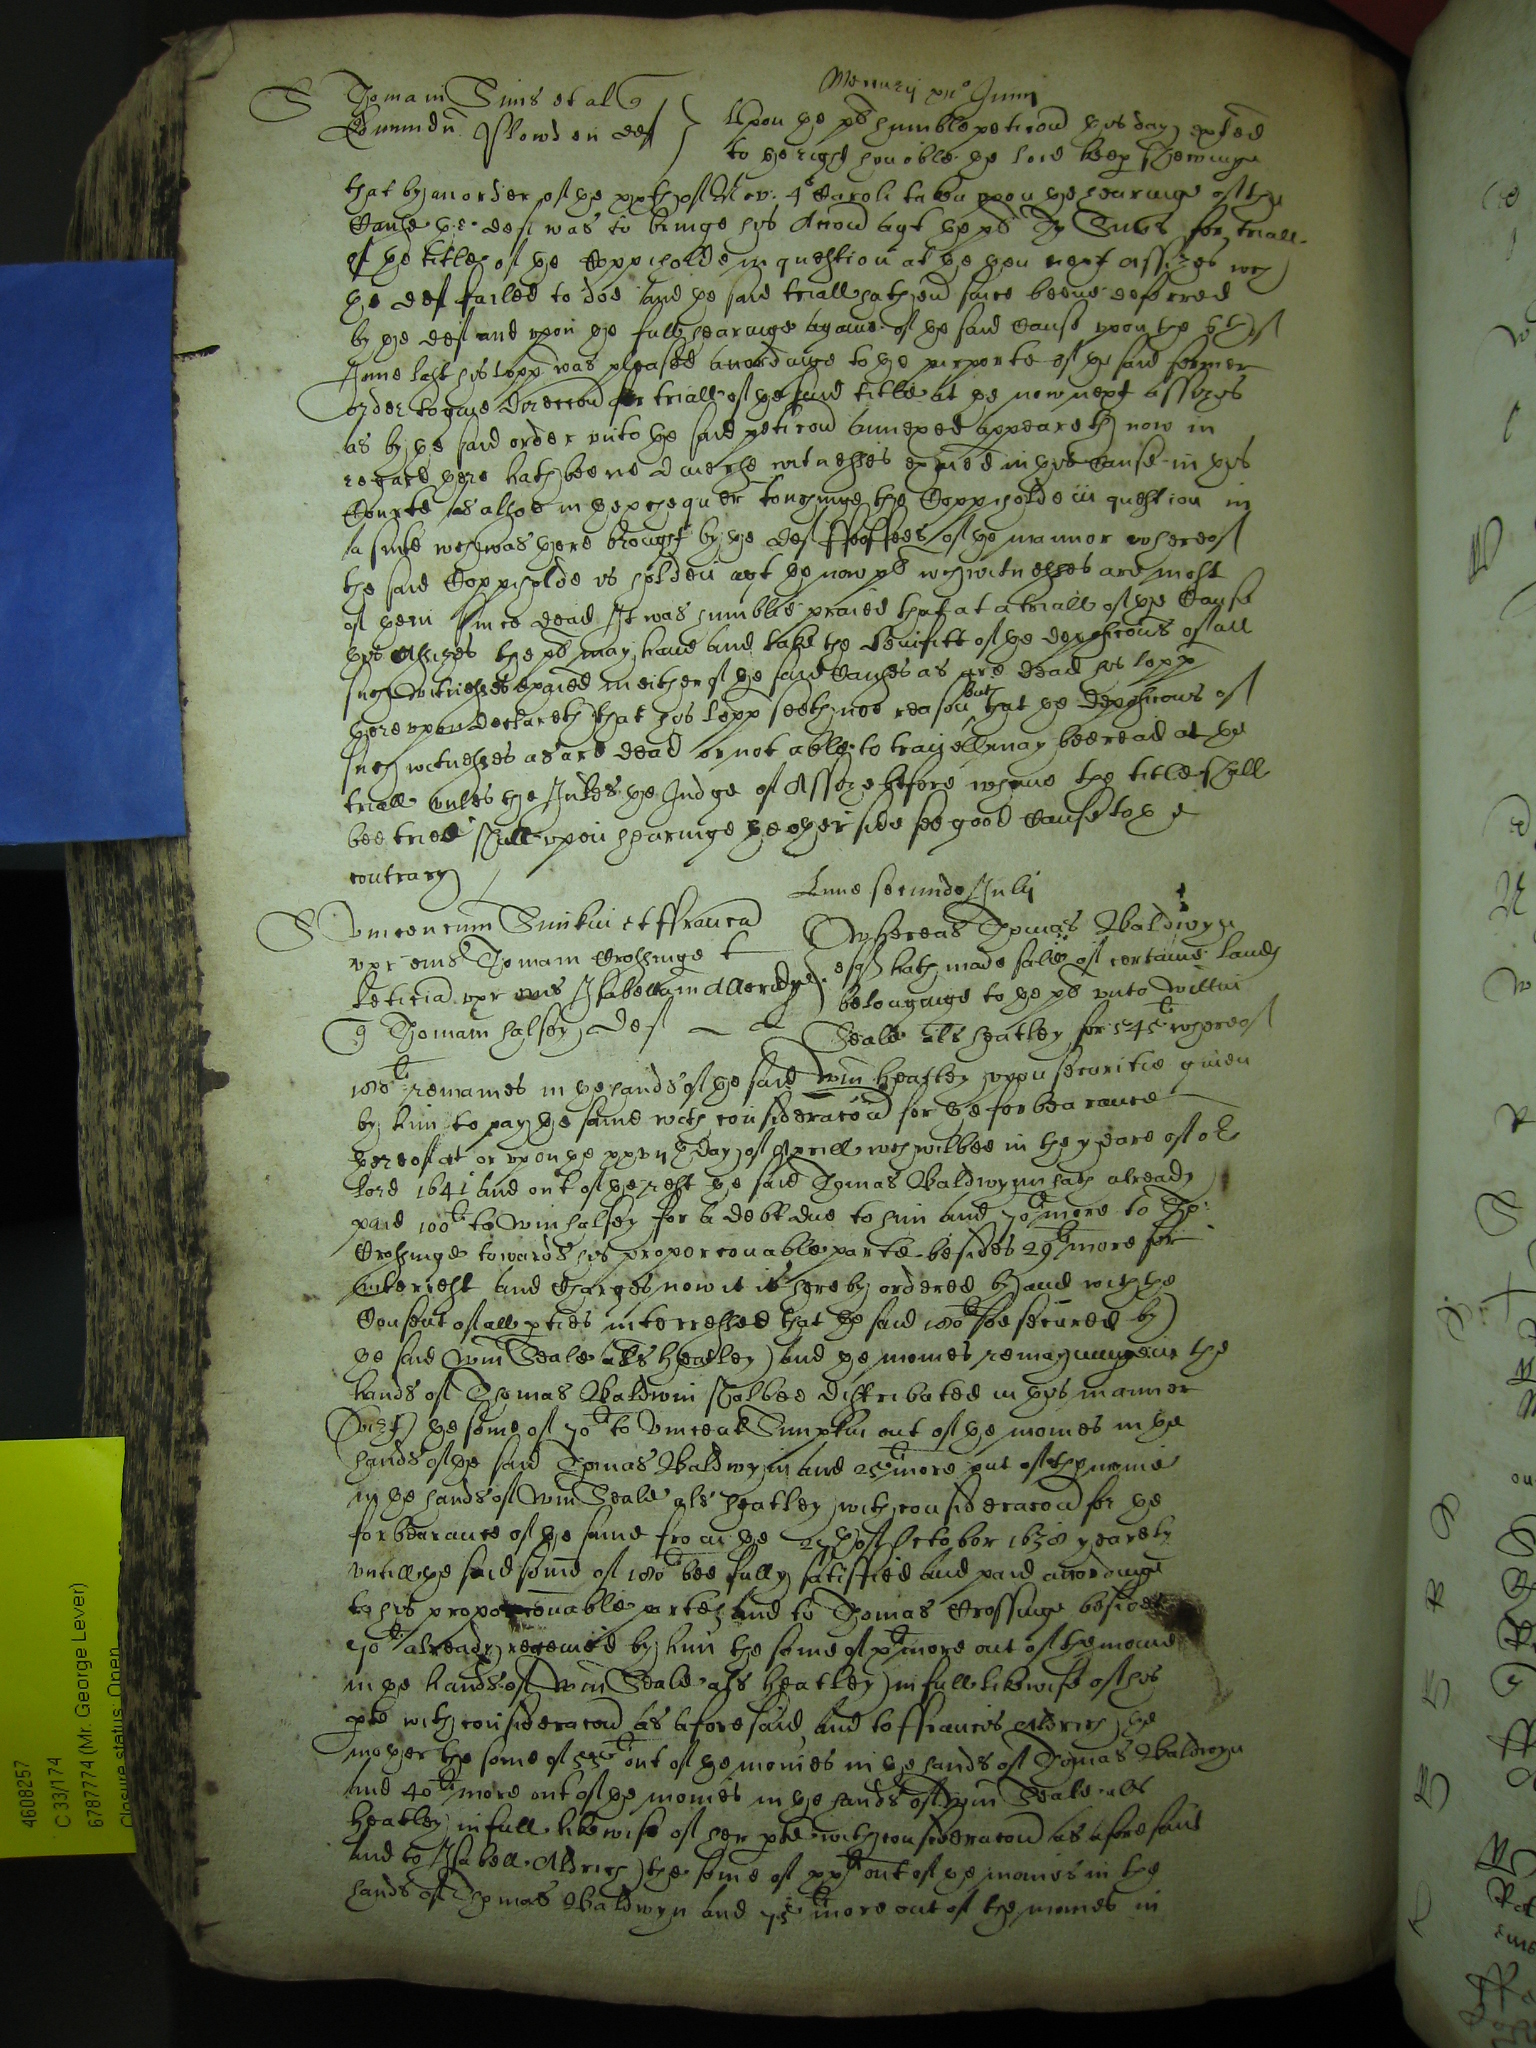 Thomam Sims et al
Edmundu Plowden def
Mercurij xviiᵒ Junij
Upon ye pls humble peticon this day exhited
to ye right honoble ye lord keep shewinge
that by an order of ye xxth of Nov. 4ᵒ Caroli taken upon ye hearinge of the
Cause ye deft was to bringe his Accon agt ye pl Tho Sims for triall
of ye title of ye Coppiholde in question at ye then next Assizes wch
ye deft failed to doe and ye said triall hath ever since beene deferred
by ye deft and upon ye full hearinge againe of ye said Cause upon the
June last his lopp was pleased accordinge to ye purporte of ye said former
order to give direccon for triall of ye said title at ye now next assizes
as by ye said order unto ye said peticon annexed appeareth now in
regard there hath beene diverse witnesses exaied in this Cause in this
Courte as alsoe in ye exchequer touchinge the Coppiholde in question in
a suite wch was there brought by ye deft ffeoffees of ye mannor whereof
the said Coppiholde is holden agt ye now pl wch witnesses are most
of them since dead It was humblie praied that at a triall of ye Cause
this Assizes the pl may have and take the benifitt of ye deposicons of all
such witnesses exaied in either of ye said Causes as are dead his lopp
thereupon declareth that his lopp seeth noe reason but that ye deposicons of
such witnesses as are dead or not able to travell may bee read at ye
triall unles the Judge of Assize before whome the title shall
bee tried shall upon hearinge ye other side see good Cause to ye
contrary
Lune secundo Julij
Vincencium Simkin et ffrancā
uxr eius Thomam Crossinge et
Leticiā uxr eius Isabellam Alleridge
q Thomam halsey def
Whereas Thomas Baldwyn
esq hath made sale of certaine lands
belonginge to ye pls unto Willm
Seale als heatley for 545li whereof
180li remaines in ye hands of ye said Wm heatley uppon securitie given
by him to pay ye same with consideracon for ye forbearance
thereof at or upon ye xxvth day of Aprill wch wilbee in the yeare of or
lord 1641 and out of ye rest ye said Thomas Baldwyn hath already
paid 100li to Wm halsey for a debt due to him and 70li more to Tho:
Crossinge towards his proporconable parte besides 29li more for
interrest and Charges now it is hereby ordered by and with the
Consent of all pties interressed that ye said 180li be secured by
ye said Wm Seale als heatley and ye monies remayninge in the
hands of Thomas Baldwin shalbee distributed in this manner
(vizt) ye some of 70li to Vincent Simpkin out of ye monies in ye
hands of ye said Thomas Baldwyn and 25li more out of the monie
in ye hands of Wm Seale als heatley with consideracon for ye
forbearance of ye same from ye 25th of October 1638 yearely
untill ye said some of 180li bee fully satisfied and paid accordinge
to his proporconable parte and to Thomas Crossinge besides
70li already receaved by him the some of xli more out of the monie
in ye hands of Wm Seale als heatley in full likewise of his
pte with consideracon as aforesaid and to ffrancis Aldrich ye
mother the some of 55li out of ye monies in ye hands of Thomas Baldwyn
and 40li more out of ye monies in ye hands of Wm Seale als
heatley in full likewise of her pte with consideracon as aforesaid
and to Isabell Aldrich the some of xxli out of ye monies in the
hands of Thomas Baldwyn and 75li more out of the monies in
4608257
C 33/174
6787774 (Mr. George Lever)
Closure status: Open